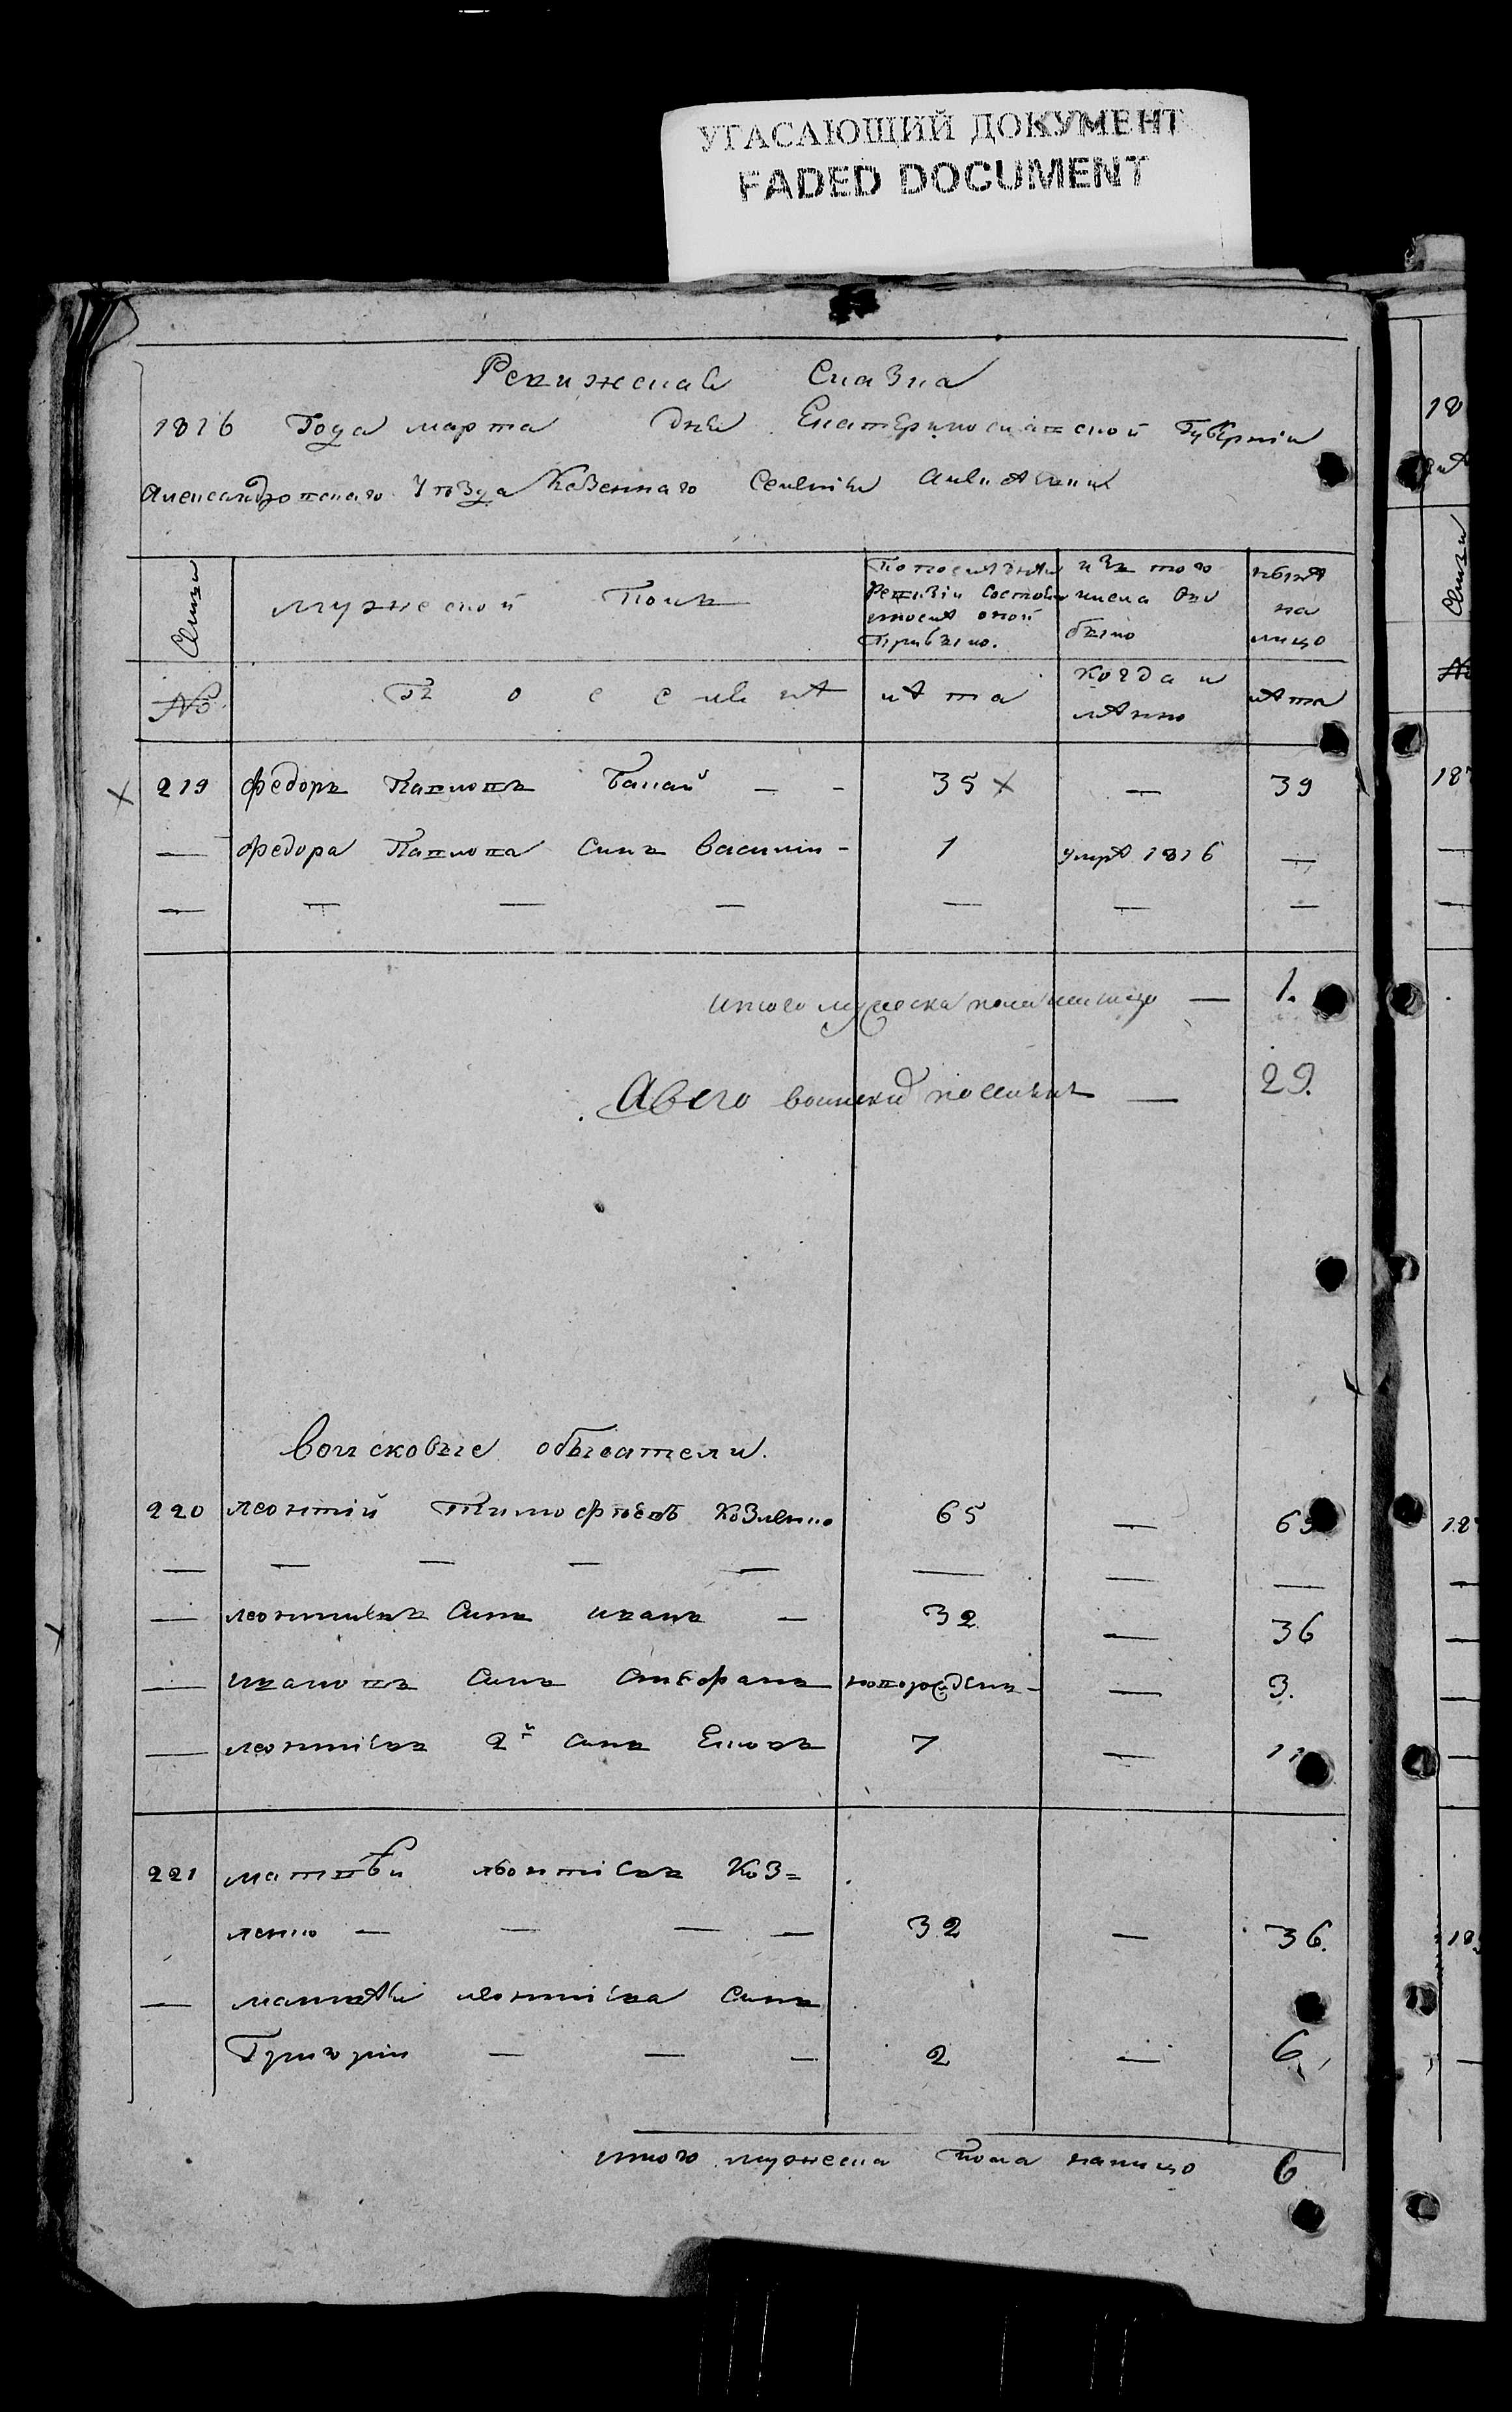 УГАСАЮЩИЙ ДОКУМЕНТ
FADED DOCUMENT
Ревижская Сказка
1816 Года марта дня Екатеринославской Губерніи
Александровскаго Уезда Казеннаго Селенія
Семьи
мужеской Полъ
По последнѣй Ревизіи Состояло и после оной Прибыло.
изъ того числа выбыло
нынѣ на лицо
№
П о с е л я н ѣ
лѣта
когда и
лѣта
219 федоръ Павловъ Бакай — - 35 — 39
— федора Павлова Синъ василій - 1 умрѣ 1816 —
— — — — — — —
итого мужеска пола налицо — 1.
А всего воински поселянъ — 29.
воисковые обыватели.
220 леонтій Тимофѣевъ Козленко 65 — 69
— — — — — — — —
— леонтіевъ Синъ иванъ — 32 — 36
— ивановъ Синъ Стефанъ новорожденъ - — 3.
— леонтіевъ 2й Синъ 7 — 11
221 матвѣи леонтіевъ Коз=
ленко — — — — 32 — 36.
— матвѣи леонтіева Синъ
Григорій — — — 2 — 6
итого мужеска пола налицо 6